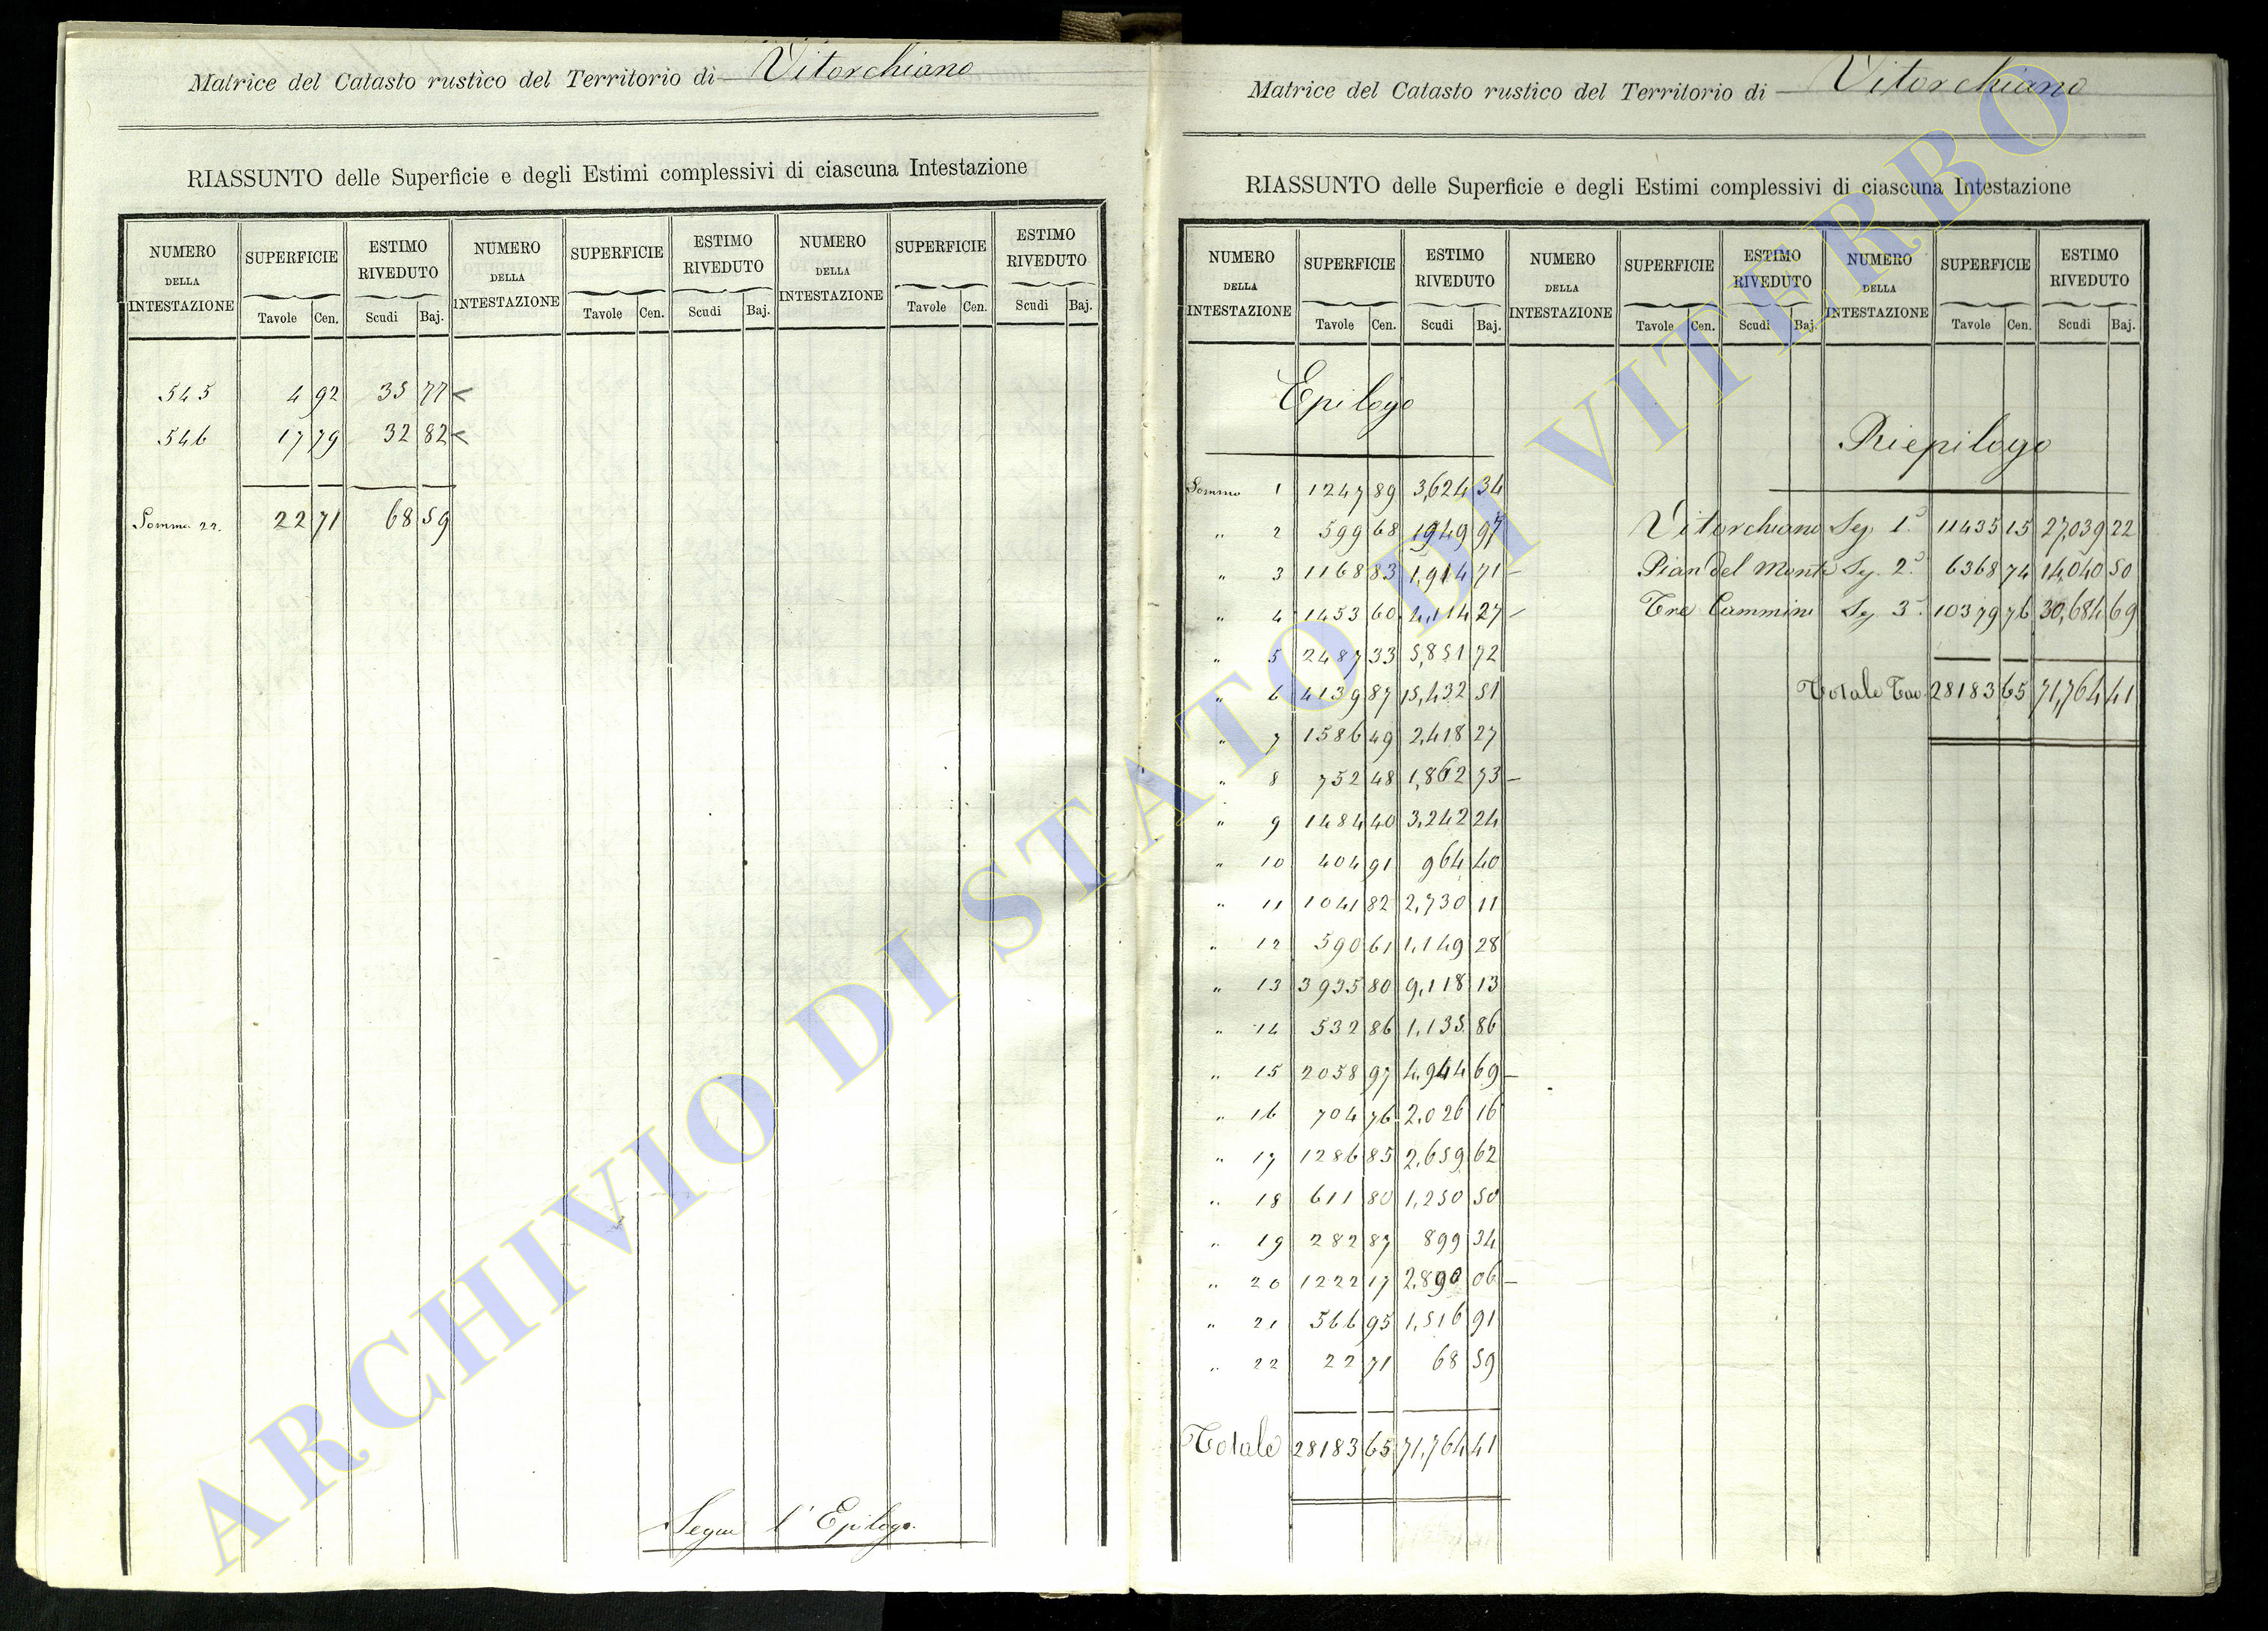 Matrice del Catasto rustico del Territorio di Vitorchiano
RIASSUNTO delle Superficie e degli Estimi complessivi di ciascuna Intestazione
NUMERO DELLA INTESTAZIONE SUPERFICIE ESTIMO RIVEDUTO NUMERO DELLA INTESTAZIONE SUPERFICIE ESTIMO RIVEDUTO NUMERO DELLA INTESTAZIONE SUPERFICIE ESTIMO RIVEDUTO
Tavole Cen. Scudi Baj. Tavole Cen. Scudi Baj. Tavole Cen. Scudi Baj.
545 4 92 35 77
546 17 79 32 82
Somma 22. 22 71 68 59
Segue l'Epilogo.
Matrice del Catasto rustico del Territorio di Vitorchiano
RIASSUNTO delle Superficie e degli Estimi complessivi di ciascuna Intestazione
NUMERO DELLA INTESTAZIONE SUPERFICIE ESTIMO RIVEDUTO NUMERO DELLA INTESTAZIONE SUPERFICIE ESTIMO RIVEDUTO NUMERO DELLA INTESTAZIONE SUPERFICIE ESTIMO RIVEDUTO
Tavole Cen. Scudi Baj. Tavole Cen. Scudi Baj. Tavole Cen. Scudi Baj.
Epilogo
Somma 1 1247 89 3,624 34
" 2 599 68 1949 97
" 3 1168 83 1,914 71 -
" 4 1453 60 4,114 27 -
" 5 2487 33 5,851 72
" 6 4139 87 15,432 51
" 7 1586 49 2,418 27
" 8 752 48 1,862 73 -
" 9 1484 40 3,242 24
" 10 404 91 964 40
" 11 1041 82 2,730 11
" 12 590 61 1,149 28
" 13 3935 80 9,118 13
" 14 532 86 1,135 86
" 15 2058 97 4,944 69 -
" 16 704 76 2,026 16
" 17 1286 85 2,659 62
" 18 611 80 1,250 50
" 19 282 87 899 34
" 20 1222 17 2,890 06 -
" 21 566 95 1,516 91
" 22 22 71 68 59
Totale 28183 65 71,764 41
Riepilogo
Vitorchiano Sez. 1ª 11435 15 27,039 22
Pian del Monte Sez. 2ª 6368 74 14,040 50
Tre Cammini Sez. 3ª 10379 76 30,684 69
Totale Tav. 28183 65 71,764 41
ARCHIVIO DI STATO DI VITERBO